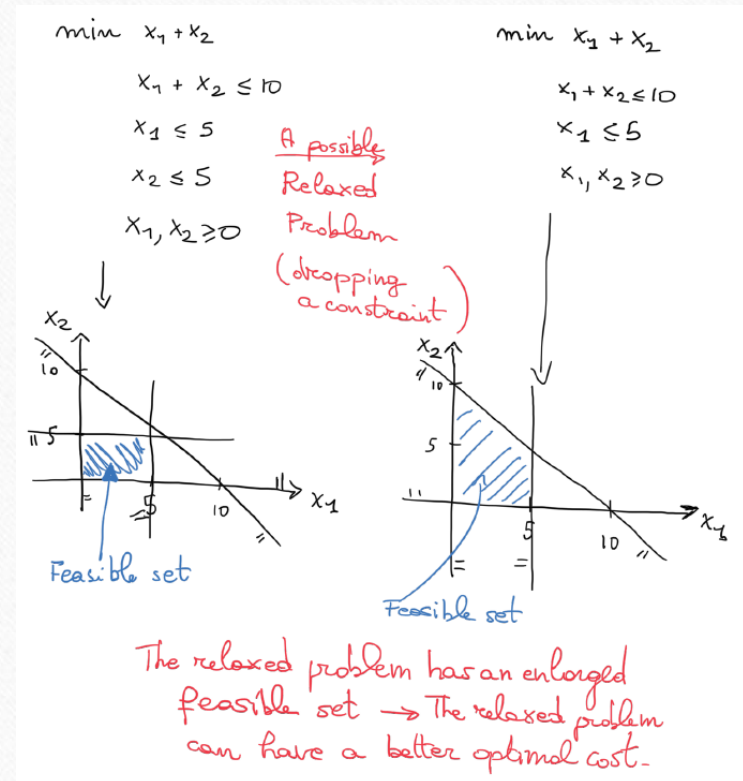 min x₁ + x₂
x₁ + x₂ ≤ 10
x₁ ≤ 5
x₂ ≤ 5
x₁, x₂ ≥ 0
A possible
Relaxed
Problem
(dropping
a constraint)
min x₁ + x₂
x₁ + x₂ ≤ 10
x₁ ≤ 5
x₁, x₂ ≥ 0
x₂
10
5
5
10
x₁
Feasible set
x₂
10
5
5
10
x₁
Feasible set
The relaxed problem has an enlarged
feasible set → The relaxed problem
can have a better optimal cost.